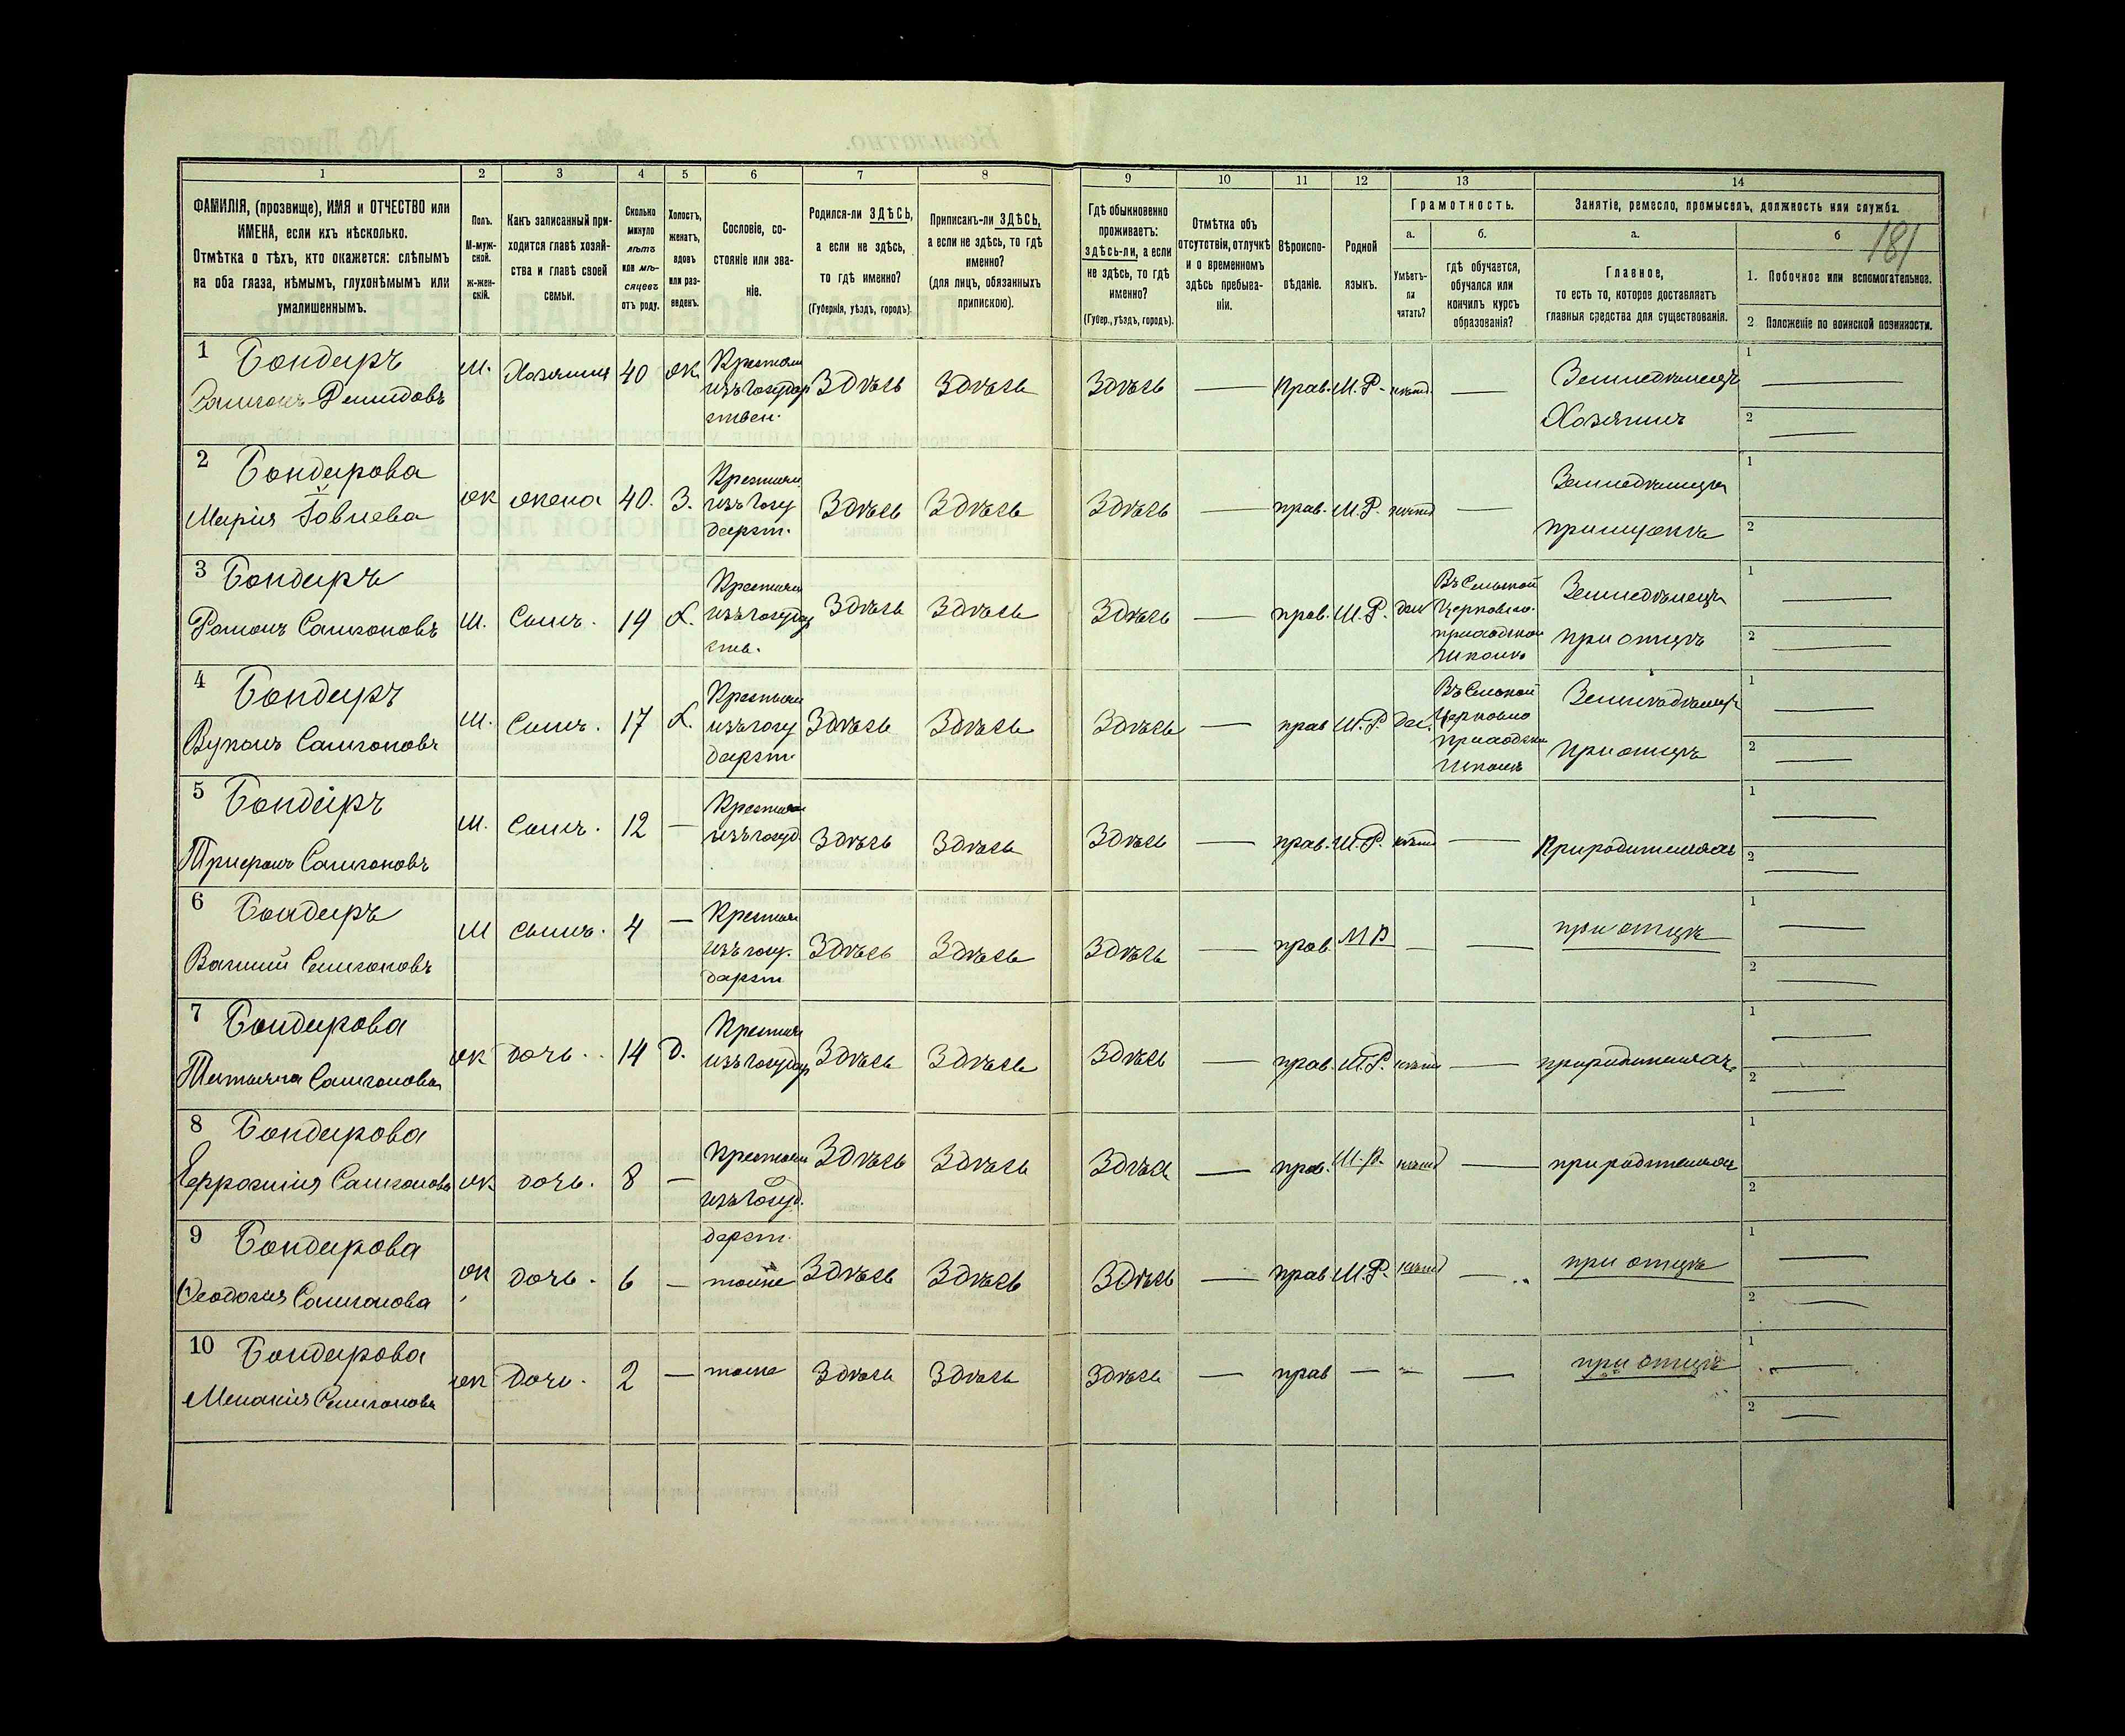 181
1 2 3 4 5 6 7 8 9 10 11 12 13 14
ФАМИЛІЯ, (прозвище), ИМЯ и ОТЧЕСТВО или
ИМЕНА, если ихъ нѣсколько.
Отмѣтка о тѣхъ, кто окажется: слѣпымъ
на оба глаза, нѣмымъ, глухонѣмымъ или
умалишеннымъ.
Полъ.
М-муж-
ской.
ж-жен-
скій.
Какъ записанный при-
ходится главѣ хозяй-
ства и главѣ своей
семьи.
Сколько
минуло
лѣтъ
или мѣ-
сяцевъ
отъ роду.
Холостъ,
женатъ,
вдовъ
или раз-
веденъ.
Сословіе, со-
стояніе или зва-
ніе.
Родился-ли ЗДѢСЬ,
а если не здѣсь,
то гдѣ именно?
(Губернія, уѣздъ, городъ).
Приписанъ-ли ЗДѢСЬ,
а если не здѣсь, то гдѣ
именно?
(для лицъ, обязанныхъ
припискою).
Гдѣ обыкновенно
проживаетъ:
здѣсь-ли, а если
не здѣсь, то гдѣ
именно?
(Губер., уѣздъ, городъ).
Отмѣтка объ
отсутствіи, отлучкѣ
и о временномъ
здѣсь пребыва-
ніи.
Вѣроиспо-
вѣданіе.
Родной
языкъ.
Грамотность.
а.
Умѣетъ-
ли
читать?
б.
гдѣ обучается,
обучался или
кончилъ курсъ
образованія?
Занятіе, ремесло, промыселъ, должность или служба.
а.
Главное,
то есть то, которое доставляетъ
главныя средства для существованія.
б
1. Побочное или вспомогательное.
2 Положеніе по воинской повинности.
1 Бондарь
Самсонъ Демидовъ
М. Хозяинъ 40 ж. Крестьян изъ государ ствен. Здѣсь Здѣсь Здѣсь — Прав. М.Р. нѣтъ — Земледѣлецъ Хозяинъ 1 — 2 —
2 Бондарова
Марія
ж жена 40. З. Крестьян изъ госу дарст. Здѣсь Здѣсь Здѣсь — прав. М.Р. нѣтъ — Земледѣлица при мужѣ 1 2
3 Бондарь
Романъ Самсоновъ
М. Сынъ. 19 Х. Крестьян изъ государ ств. Здѣсь Здѣсь Здѣсь — прав. М.Р. да Въ Сельской Церковно- приходской Школѣ Земледѣлецъ при отцѣ 1 — 2 —
4 Бондарь
Вуколъ Самсоновъ
М. Сынъ. 17 Х. Крестьян изъ госу дарст. Здѣсь Здѣсь Здѣсь — прав М.Р. да. Въ Сельской Церковно Приходской Школѣ Земледѣлецъ При отцѣ 1 — 2 —
5 Бондарь
Трифонъ Самсоновъ
М. Сынъ. 12 — Крестьян изъ госуд. Здѣсь Здѣсь Здѣсь — прав. М.Р. нѣтъ — При родителяхъ 1 — 2 —
6 Бондарь
Василій Самсоновъ
М сынъ. 4 — Крестьян изъ госу. дарст Здѣсь Здѣсь Здѣсь — прав. М Р — — при отцѣ 1 — 2 —
7 Бондарова
Татьяна Самсонова
ж дочь. 14 Д. Крестьян изъ государ Здѣсь Здѣсь Здѣсь — прав. М.Р. нѣтъ — при родителяхъ 1 — 2 —
8 Бондарова
Ефросинія Самсонова
ж дочь. 8 — Крестьян изъ Госуд. дарст. Здѣсь Здѣсь Здѣсь — прав. М.Р. нѣтъ — при родителяхъ 1 2
9 Бондарова
Феодосія Самсонова
ж дочь. 6 — тоже Здѣсь Здѣсь Здѣсь — прав М.Р. нѣтъ — при отцѣ 1 — 2 —
10 Бондарова
Меланія Самсонова
ж Дочь. 2 — тоже Здѣсь Здѣсь Здѣсь — прав — — — при отцѣ 1 — 2 —